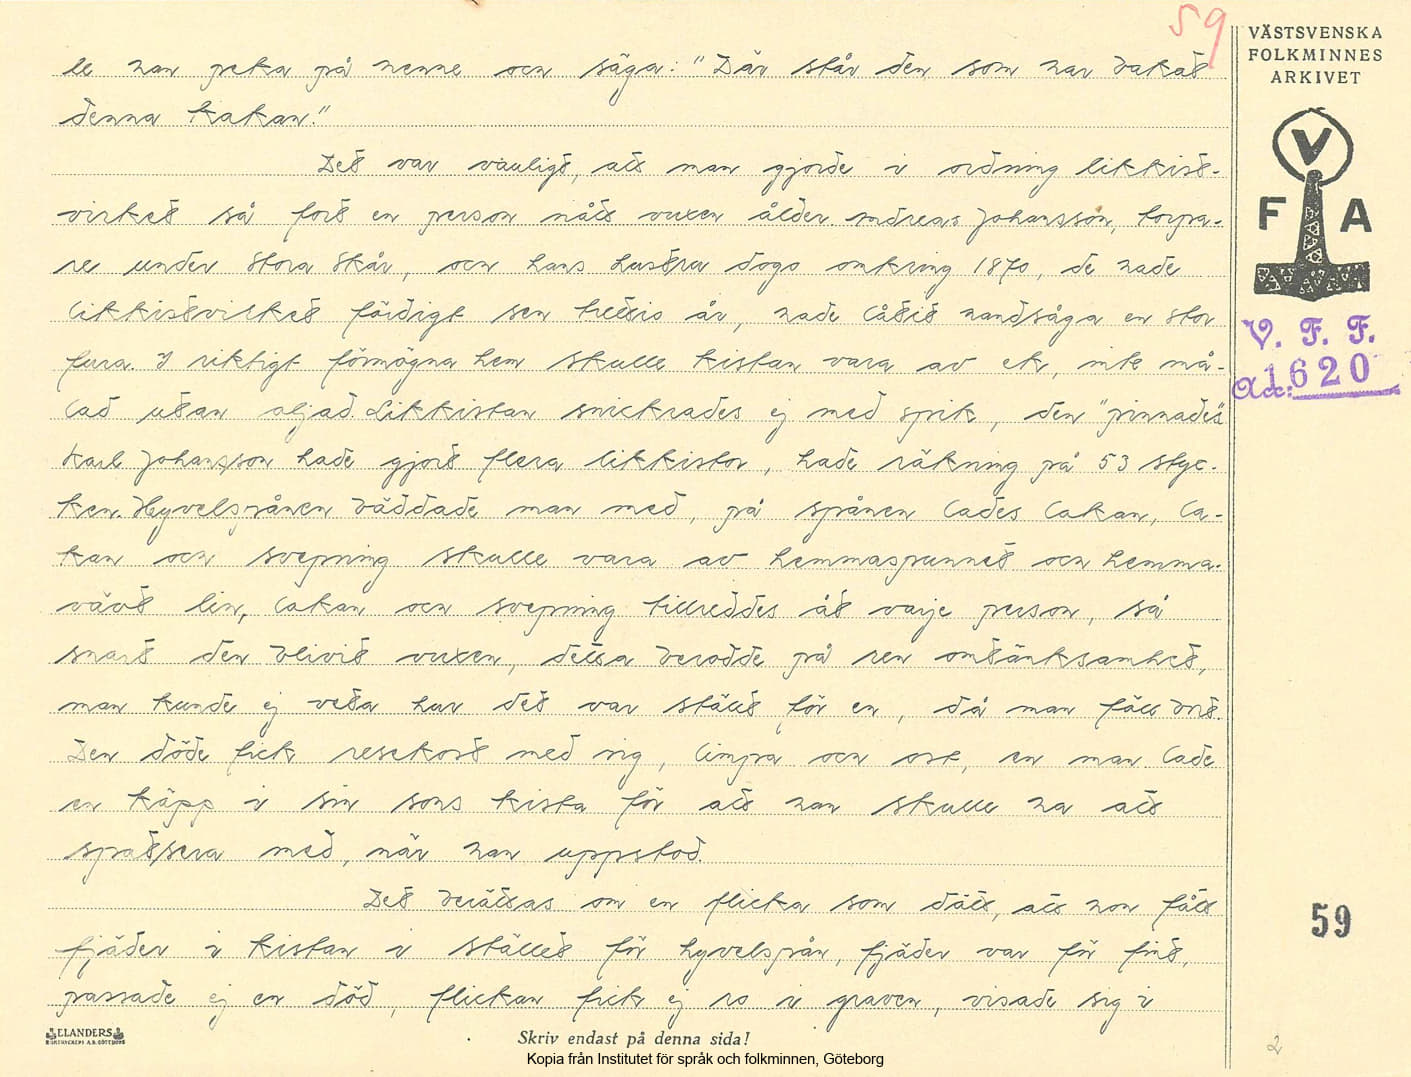 59
VÄSTSVENSKA
FOLKMINNES
ARKIVET
le han peka på henne och säga: "Där står den som har bakat
denna kakan."
Det var vanligt, att man gjorde i ordning likkist-
virket så fort en person nått vuxen ålder. Andreas Johansson, torpa-
re under Stora Skår, och hans hustru dogo omkring 1870, de hade
likkistvirket färdigt sen trettio år, hade låtit handsåga en stor
fura. I riktigt förmögna hem skulle kistan vara av ek, inte må-
lad utan oljad. Likkistan snickrades ej med spik, den "pinnades"
Karl Johansson hade gjort flera likkistor, hade räkning på 53 styc-
ken. Hyvelspånen bäddade man med, på spånen lades lakan, la-
kan och svepning skulle vara av hemmaspunnet och hemma-
vävt lin, lakan och svepning tillreddes åt varje person, så
snart den blivit vuxen, detta berodde på ren omtänksamhet,
man kunde ej veta hur det var ställt för en, då man föll bort.
Den döde fick resekost med sig, limpa och ost, en man lade
en käpp i sin sons kista för att han skulle ha att
spatsera med, när han uppstod.
Det berättas om en flicka som dött, att hon fått
fjäder i kistan i stället för hyvelspån, fjäder var för fint,
passade ej en död, flickan fick ej ro i graven, visade sig i
V
F A
V. F. F.
Acc: 1620
59
2
ELANDERS
Skriv endast på denna sida!
Kopia från Institutet för språk och folkminnen, Göteborg